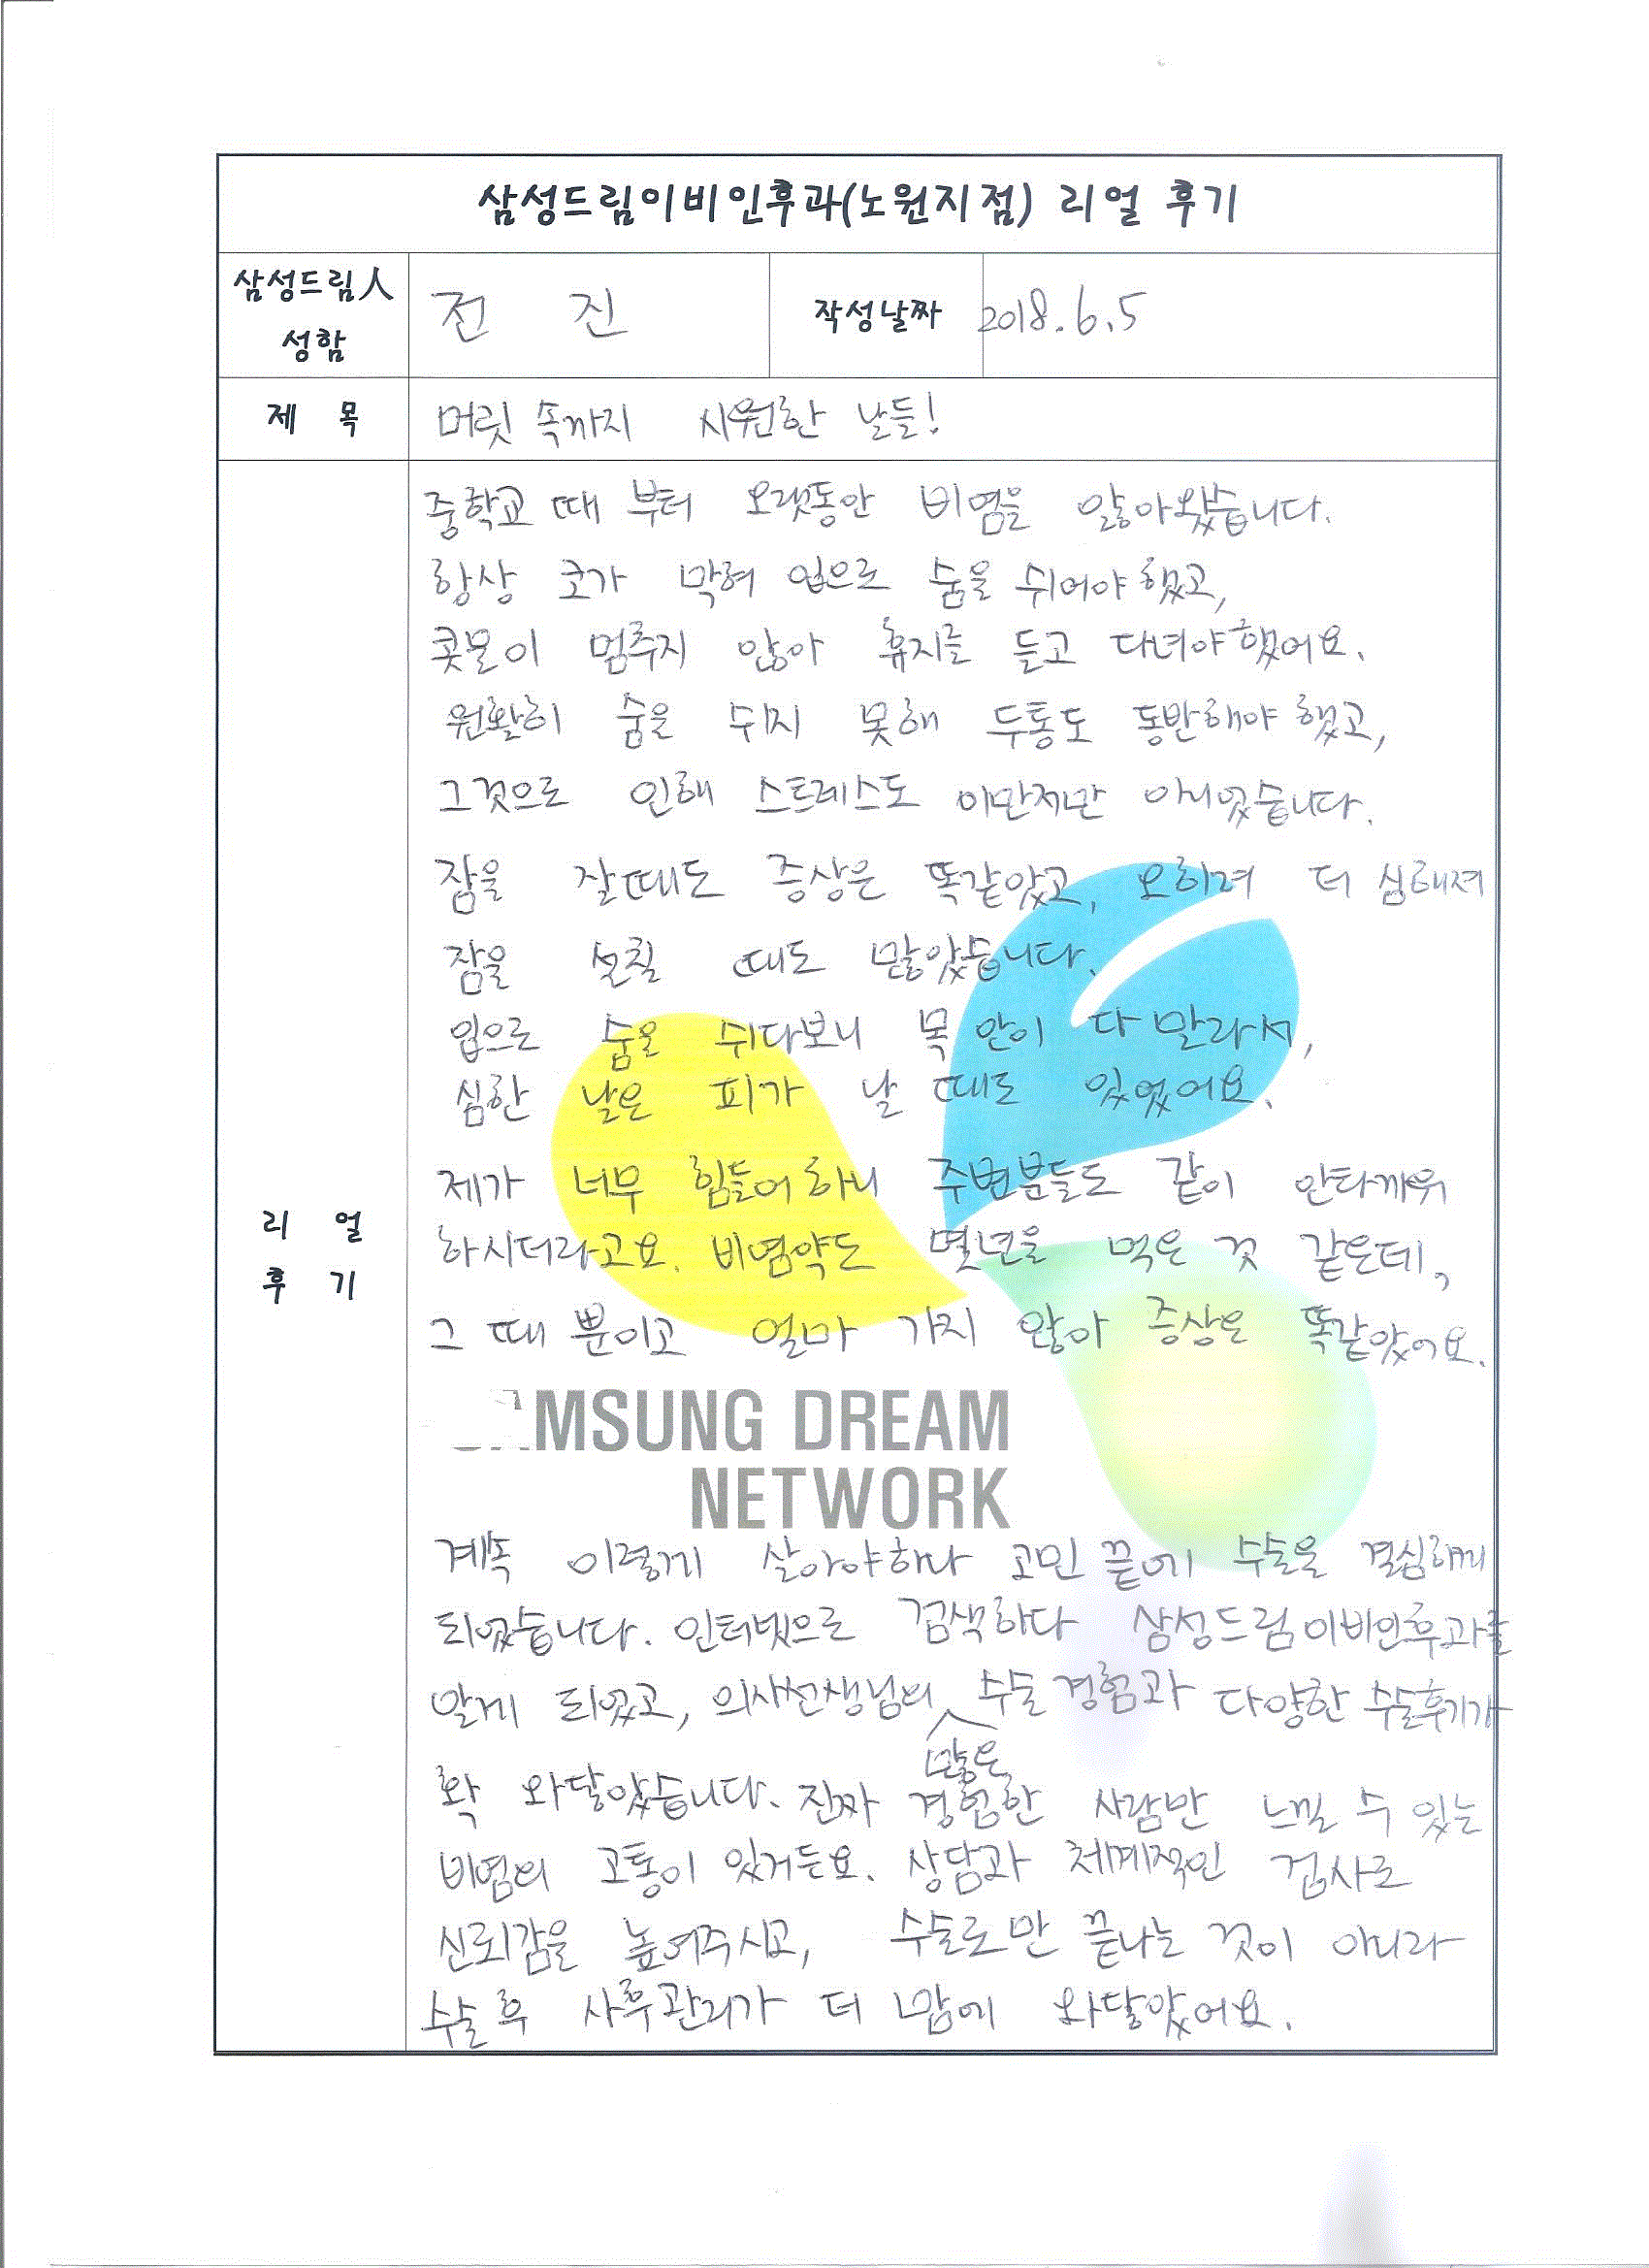 삼성드림이비인후과(노원지점) 리얼 후기
삼성드림人 성함
전 진
작성날짜
2018.6.5
제 목
머릿 속까지 시원한 날들!
리 얼
후 기
중학교 때 부터 오랫동안 비염을 앓아왔습니다.
항상 코가 막혀 입으로 숨을 쉬어야 했고,
콧물이 멈추지 않아 휴지를 들고 다녀야 했어요.
원활히 숨을 쉬지 못해 두통도 동반해야 했고,
그것으로 인해 스트레스도 이만저만 아니었습니다.
잠을 잘때도 증상은 똑같았고, 오히려 더 심해져
잠을 설칠 때도 많았습니다.
입으로 숨을 쉬다보니 목 안이 다 말라서,
심한 날은 피가 날 때도 있었어요.
제가 너무 힘들어 하니 주변분들도 같이 안타까워
하시더라고요. 비염약도 몇년을 먹은 것 같은데,
그 때 뿐이고 얼마 가지 않아 증상은 똑같았어요.
MSUNG DREAM
NETWORK
계속 이렇게 살아야하나 고민 끝에 수술을 결심하게
되었습니다. 인터넷으로 검색하다 삼성드림이비인후과를
알게 되었고, 의사선생님의 많은 수술 경험과 다양한 수술후기가
확 와닿았습니다. 진짜 경험한 사람만 느낄 수 있는
비염의 고통이 있거든요. 상담과 체계적인 검사로
신뢰감을 높여주시고, 수술로만 끝나는 것이 아니라
수술 후 사후관리가 더 맘에 와닿았어요.